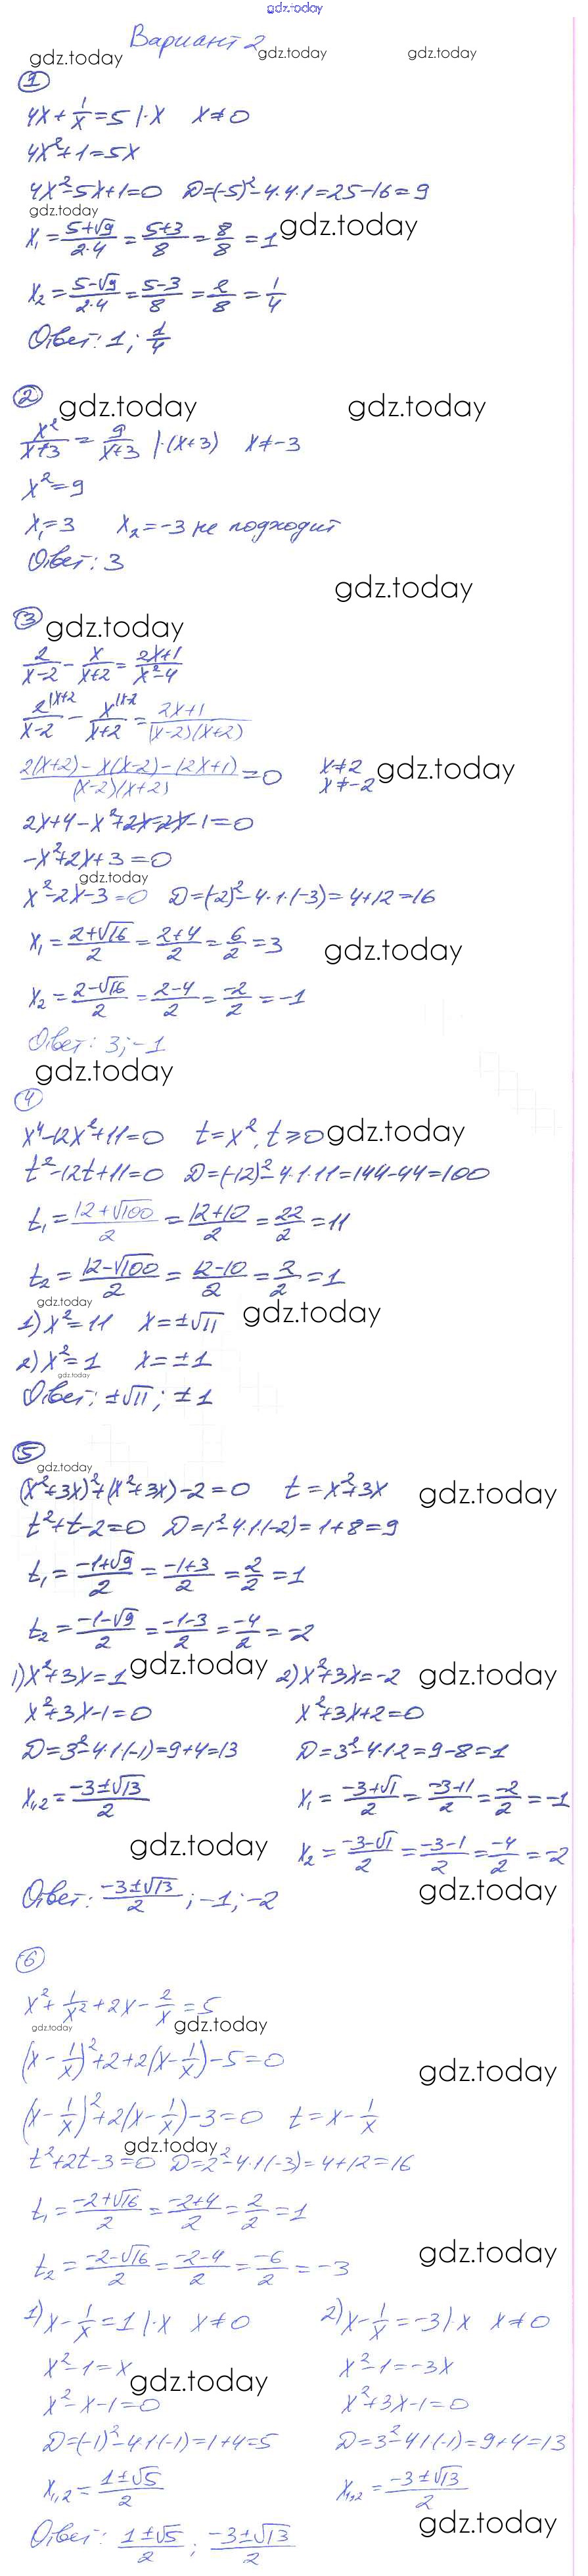 gdz.today
Вариант 2
gdz.today gdz.today gdz.today
1
4x + 1/x = 5 | ·x x ≠ 0
4x² + 1 = 5x
4x² - 5x + 1 = 0 D = (-5)² - 4·4·1 = 25 - 16 = 9
gdz.today
x₁ = (5+√9)/(2·4) = (5+3)/8 = 8/8 = 1 gdz.today
x₂ = (5-√9)/(2·4) = (5-3)/8 = 2/8 = 1/4
Ответ: 1; 1/4
2 gdz.today gdz.today
x²/(x+3) = 9/(x+3) | ·(x+3) x ≠ -3
x² = 9
x₁ = 3 x₂ = -3 не подходит
Ответ: 3
gdz.today
3 gdz.today
2/(x-2) - x/(x+2) = (2x+1)/(x²-4)
2^(x+2)/(x-2) - x^(x-2)/(x+2) = (2x+1)/((x-2)(x+2))
(2(x+2) - x(x-2) - (2x+1))/((x-2)(x+2)) = 0 x ≠ 2 x ≠ -2 gdz.today
2x + 4 - x² + 2x - 2x - 1 = 0
-x² + 2x + 3 = 0
gdz.today
x² - 2x - 3 = 0 D = (-2)² - 4·1·(-3) = 4 + 12 = 16
x₁ = (2+√16)/2 = (2+4)/2 = 6/2 = 3 gdz.today
x₂ = (2-√16)/2 = (2-4)/2 = -2/2 = -1
Ответ: 3; -1
gdz.today
4
x⁴ - 12x² + 11 = 0 t = x², t ≥ 0 gdz.today
t² - 12t + 11 = 0 D = (-12)² - 4·1·11 = 144 - 44 = 100
t₁ = (12+√100)/2 = (12+10)/2 = 22/2 = 11
t₂ = (12-√100)/2 = (12-10)/2 = 2/2 = 1
gdz.today
1) x² = 11 x = ±√11 gdz.today
2) x² = 1 x = ±1
gdz.today
Ответ: ±√11; ±1
5
gdz.today
(x²+3x)² + (x²+3x) - 2 = 0 t = x² + 3x gdz.today
t² + t - 2 = 0 D = 1² - 4·1·(-2) = 1 + 8 = 9
t₁ = (-1+√9)/2 = (-1+3)/2 = 2/2 = 1
t₂ = (-1-√9)/2 = (-1-3)/2 = -4/2 = -2
1) x² + 3x = 1 gdz.today 2) x² + 3x = -2 gdz.today
x² + 3x - 1 = 0 x² + 3x + 2 = 0
D = 3² - 4·1·(-1) = 9 + 4 = 13 D = 3² - 4·1·2 = 9 - 8 = 1
x₁,₂ = (-3±√13)/2 x₁ = (-3+√1)/2 = (-3+1)/2 = -2/2 = -1
gdz.today x₂ = (-3-√1)/2 = (-3-1)/2 = -4/2 = -2
Ответ: (-3±√13)/2; -1; -2 gdz.today
6
x² + 1/x² + 2x - 2/x = 5
gdz.today gdz.today
(x - 1/x)² + 2 + 2(x - 1/x) - 5 = 0
gdz.today
(x - 1/x)² + 2(x - 1/x) - 3 = 0 t = x - 1/x
gdz.today
t² + 2t - 3 = 0 D = 2² - 4·1·(-3) = 4 + 12 = 16
t₁ = (-2+√16)/2 = (-2+4)/2 = 2/2 = 1
gdz.today
t₂ = (-2-√16)/2 = (-2-4)/2 = -6/2 = -3
1) x - 1/x = 1 | ·x x ≠ 0 2) x - 1/x = -3 | ·x x ≠ 0
x² - 1 = x x² - 1 = -3x
gdz.today
x² - x - 1 = 0 x² + 3x - 1 = 0
D = (-1)² - 4·1·(-1) = 1 + 4 = 5 D = 3² - 4·1·(-1) = 9 + 4 = 13
x₁,₂ = (1±√5)/2 x₁,₂ = (-3±√13)/2
gdz.today
Ответ: (1±√5)/2; (-3±√13)/2